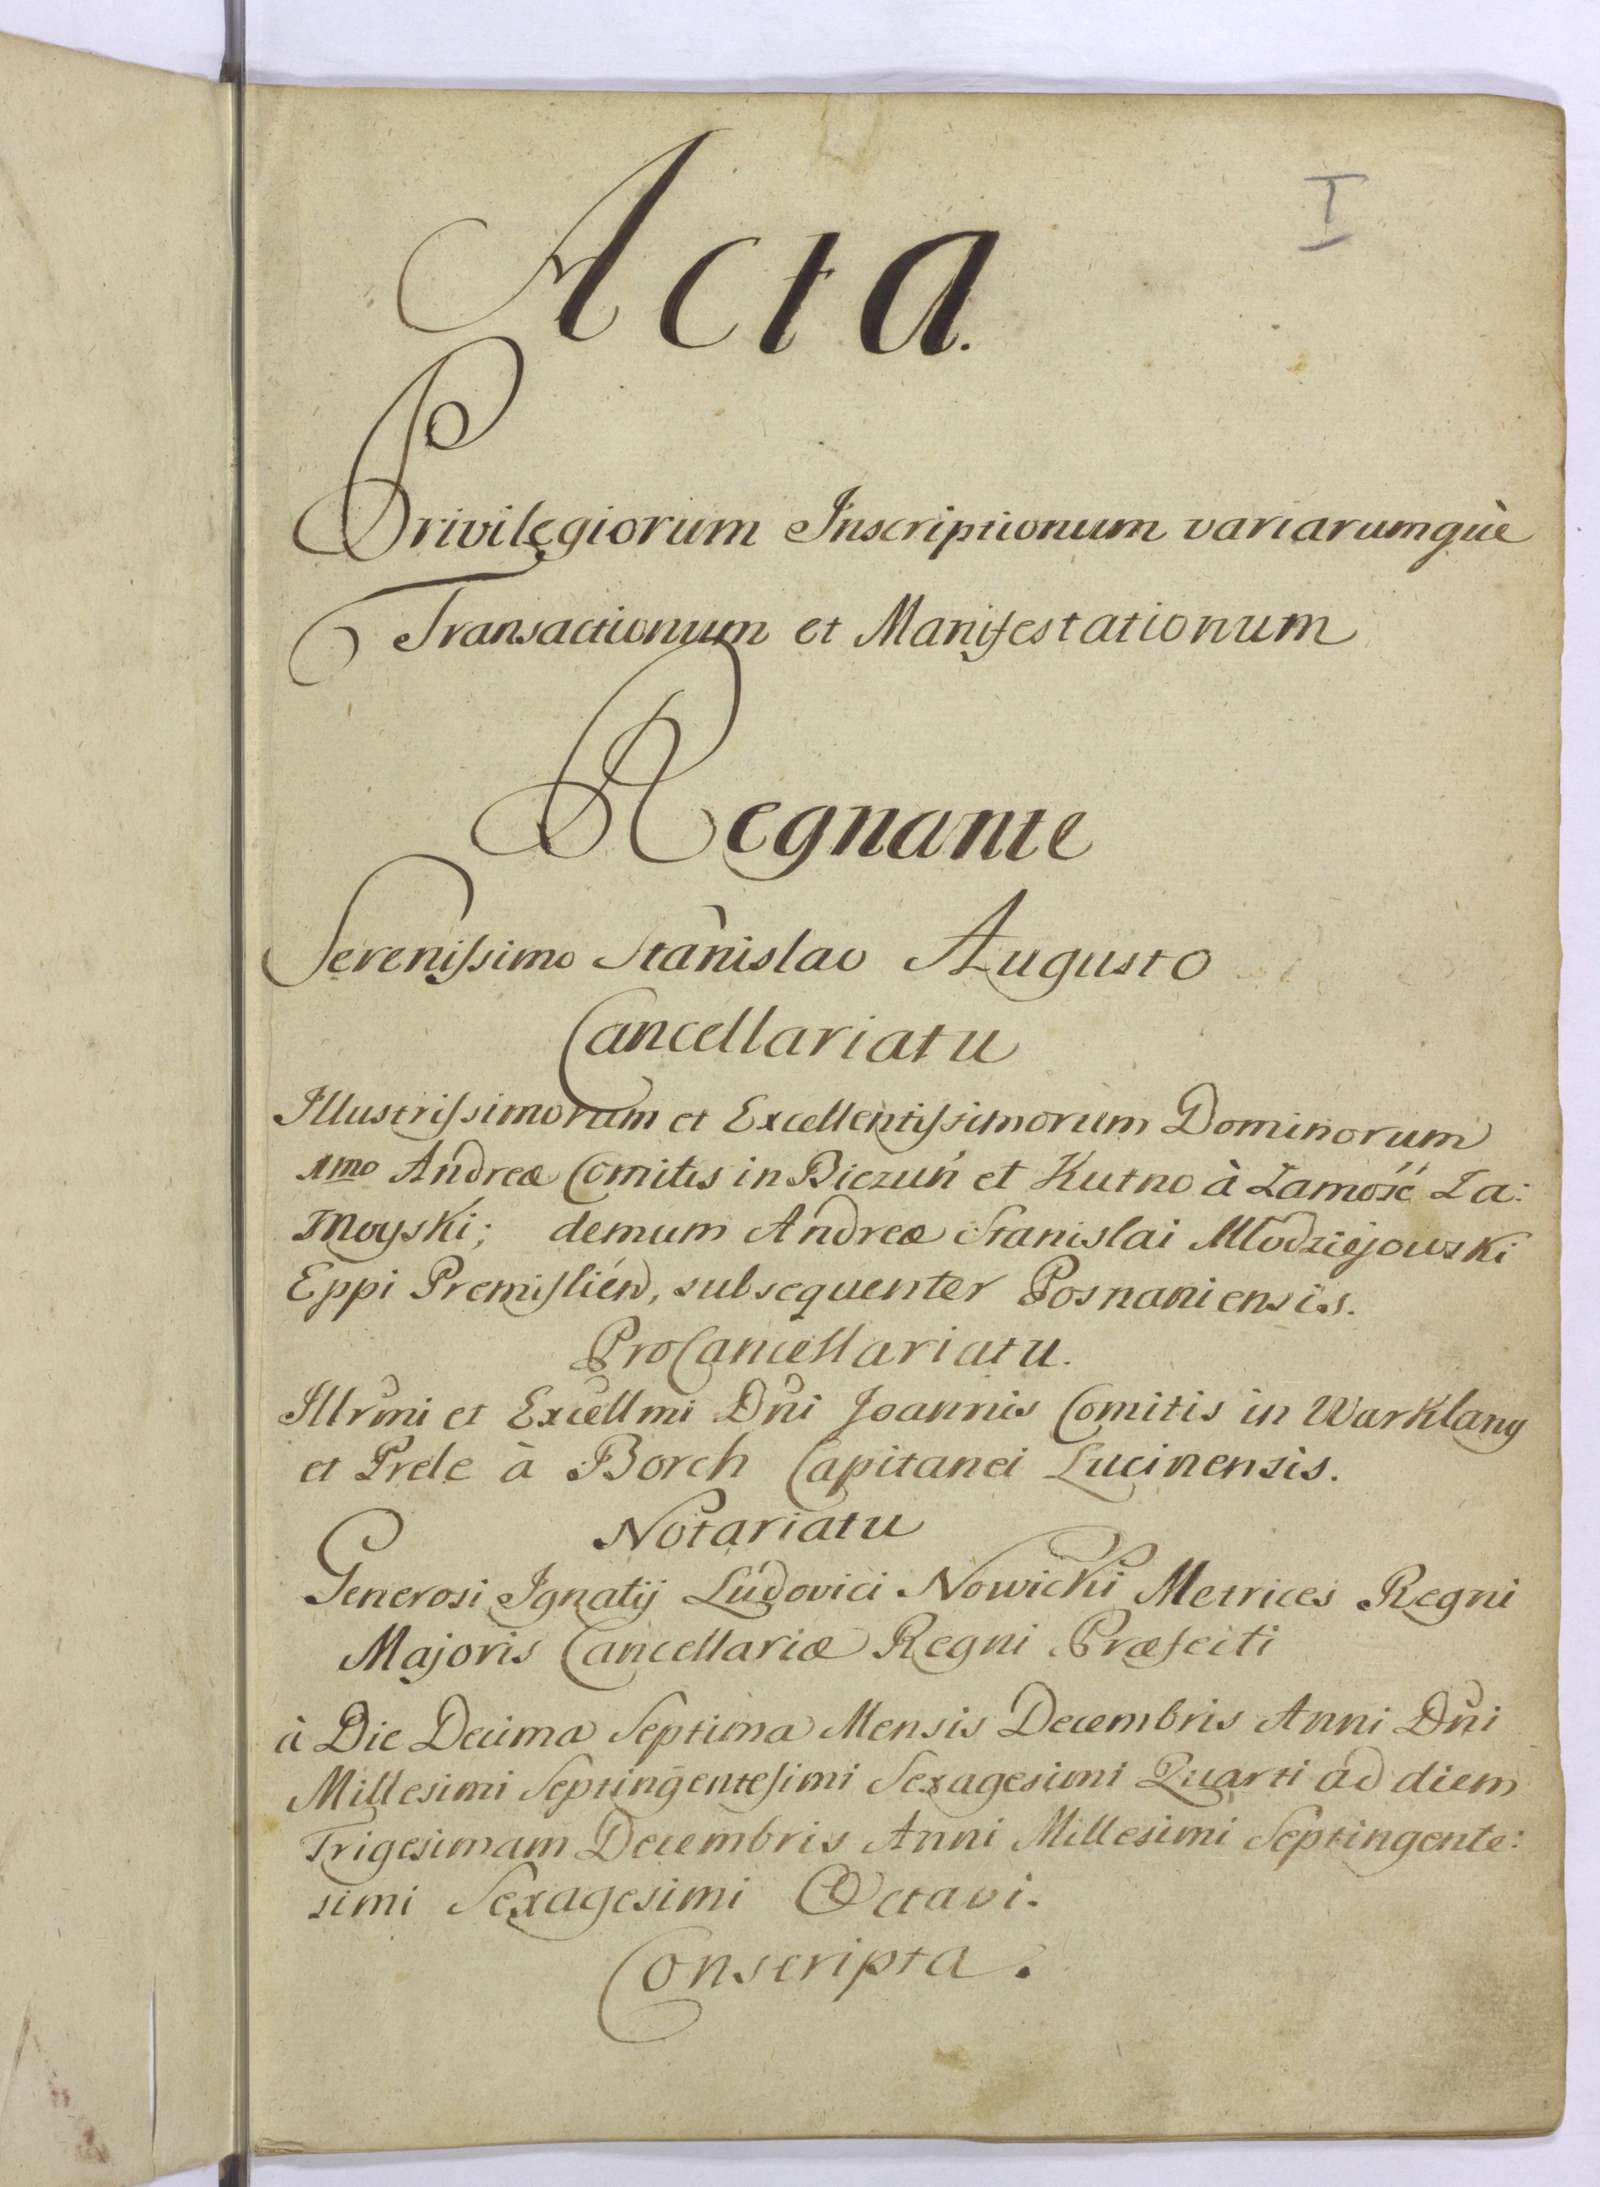 I
Acta.
Privilegiorum Inscriptionum variarumquè
Transactionum et Manifestationum
Regnante
Serenissimo Stanislao Augusto
Cancellariatu
Illustrissimorum et Excellentissimorum Dominorum
1mo Andreæ Comitis in Biezuń et Kutno à Zamość Za:
moyski; demum Andreæ Stanislai Młodziejowski
Eppi Premislień, subsequenter Posnaniensis.
ProCancellariatu.
Illrmi et Excellmi Dni Joannis Comitis in Warklany
et Prele à Borch Capitanei Lucinensis.
Notariatu
Generosi Ignatij Ludovici Nowicki Metrices Regni
Majoris Cancellariæ Regni Præfecti
à Die Decima Septima Mensis Decembris Anni Dni
Millesimi Septingentesimi Sexagesimi Quarti ad diem
Trigesimam Decembris Anni Millesimi Septingente:
simi Sexagesimi Octavi.
Conscripta.